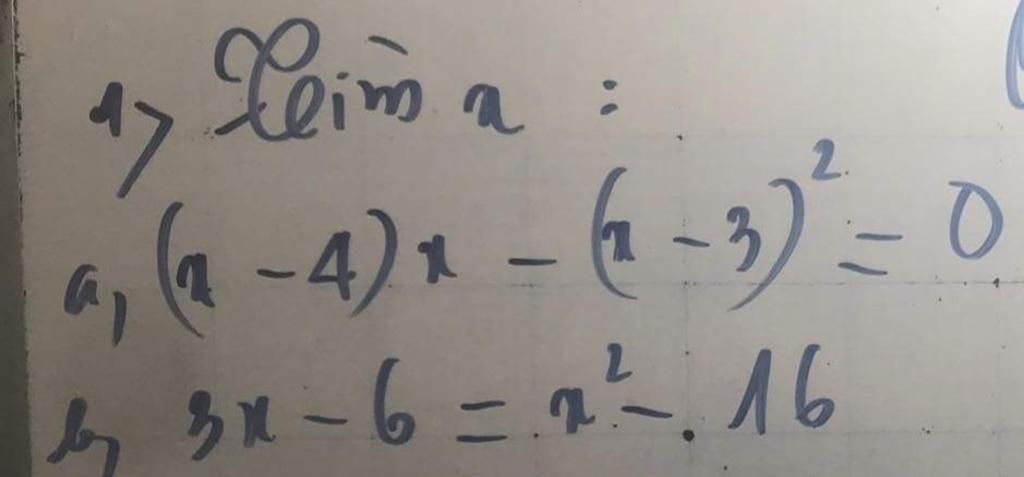 1> Tìm x :
a, (x - 4) x - (x - 3)² = 0
b, 3x - 6 = x² - 16